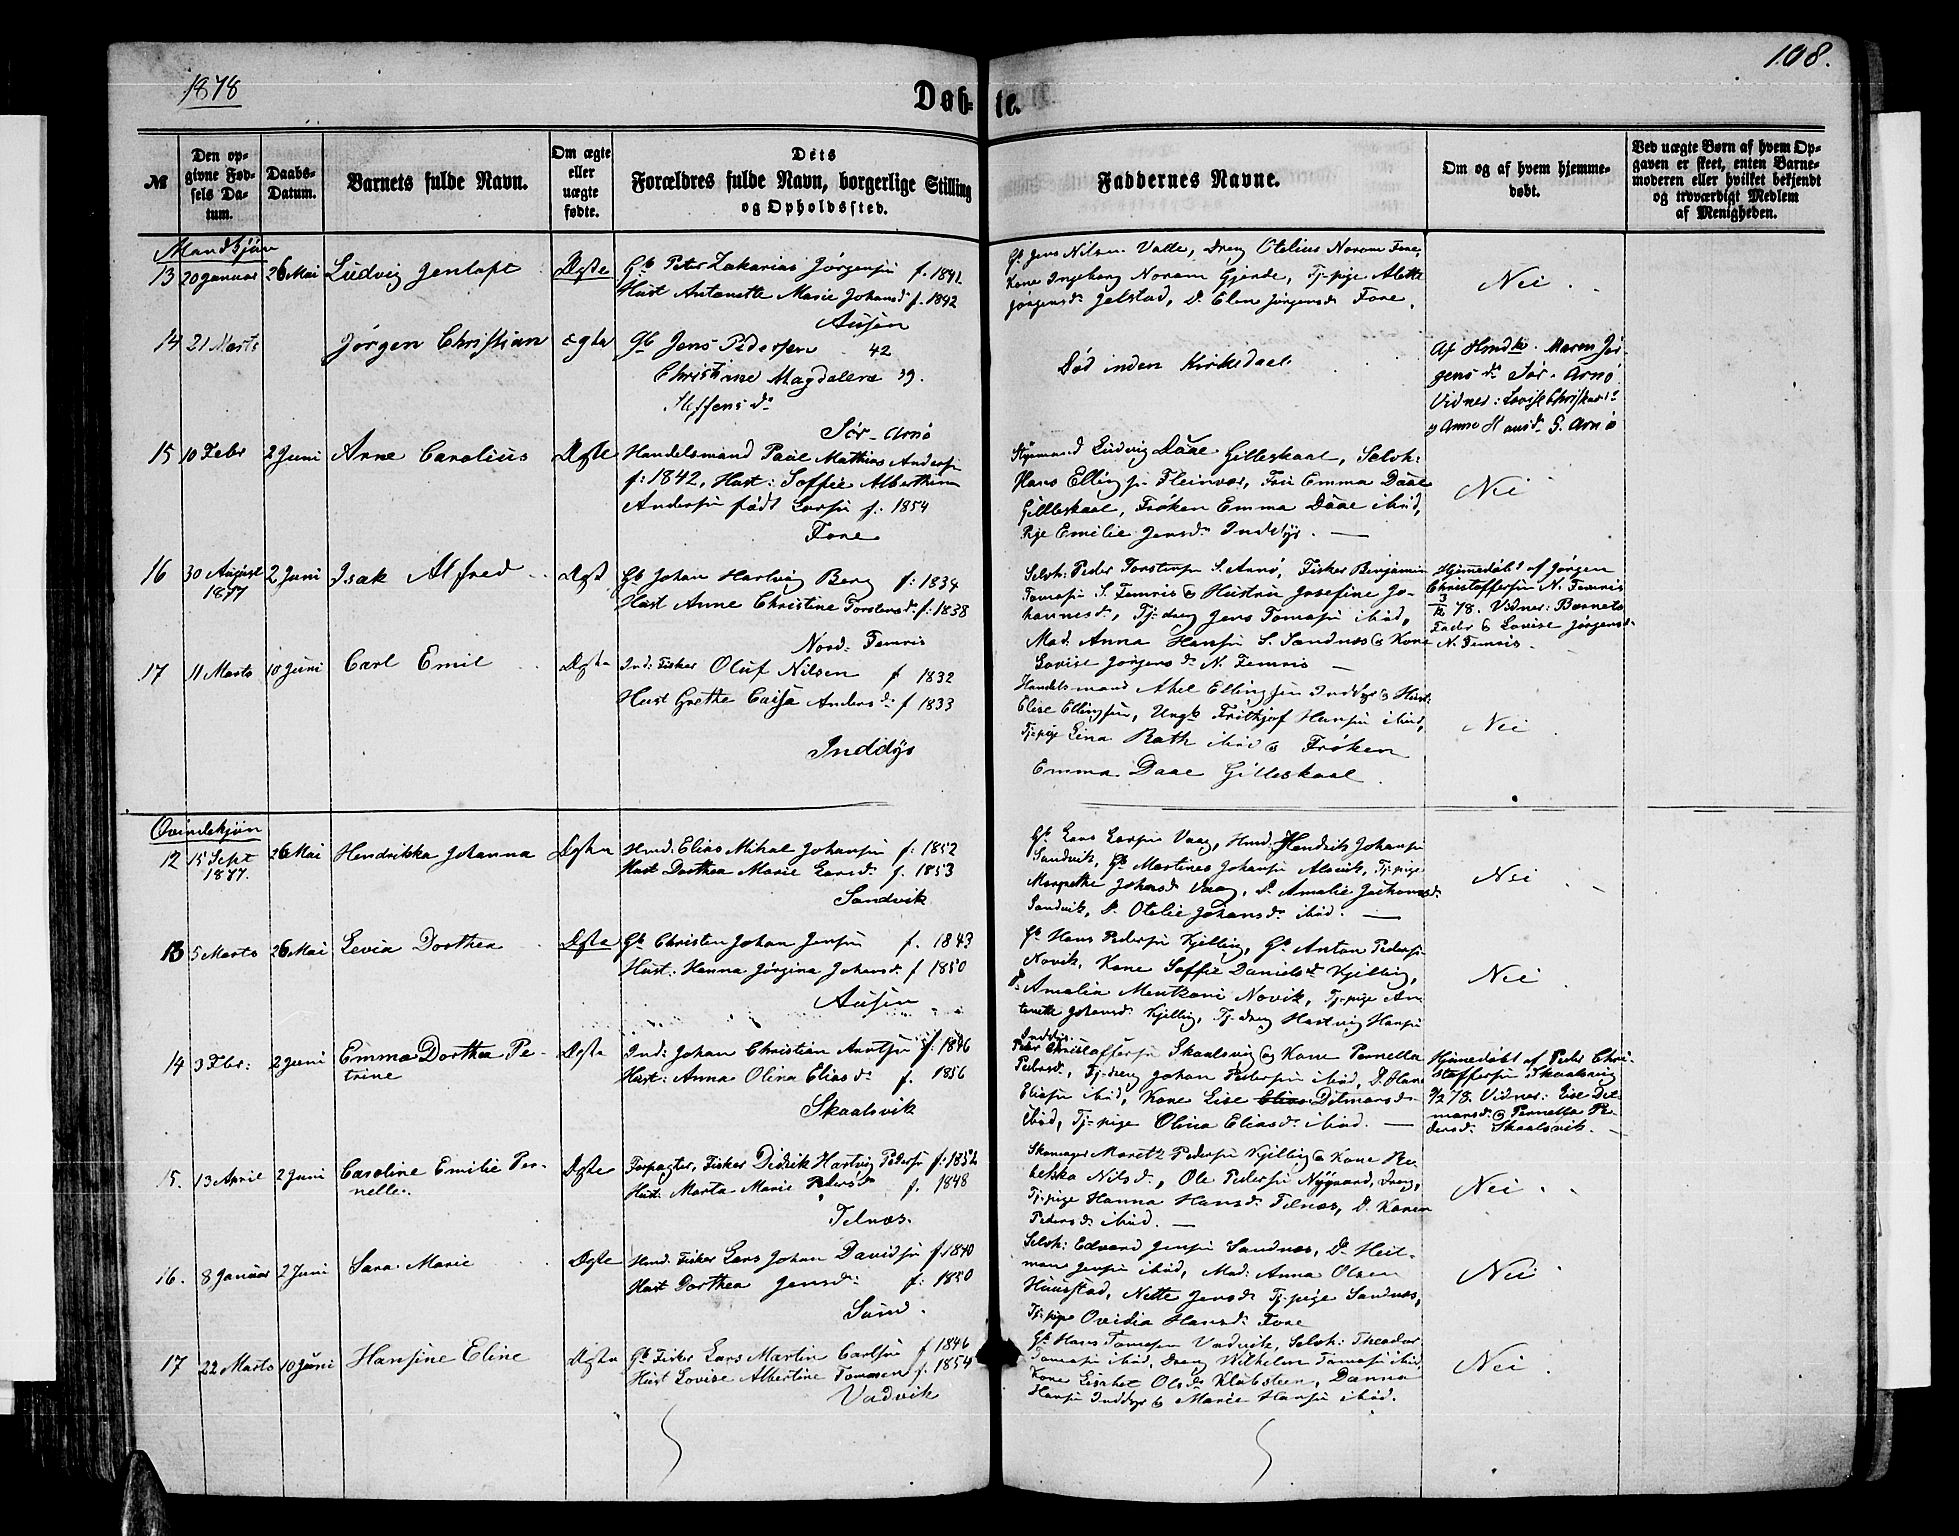 1878
108.
Døb-te.
№
Den op-
givne Fød-
sels Da-
tum.
Daabs-
Datum.
Barnets fulde Navn.
Om ægte
eller
uægte
fødte.
Dets
Forældres fulde Navn, borgerlige Stilling
og Opholdssted.
Faddernes Navne.
Om og af hvem hjemme-
døbt.
Ved uægte Børn af hvem Op-
gaven er skeet, enten Barne-
moderen eller hvilket bekjendt
og troværdigt Medlem
af Menigheden.
Mandkjøn
13 20 Januar 26 Mai Ludvig Jentoft Ægte
Gb Peter Zakarias Jørgensen f. 1841
Hust Antonette Marie Johansd f. 1842
Ausen
Gb Jens Nilsen Valle, Dreng Otelius Norum Fore,
Kone Ingeborg Norum Gjerde, Tj-pige Alette
Jørgensd. Jelstad, D. Elen Jørgensd. Fore.
Nei.
14 21 Marts Jørgen Christian ægte
Gb Jens Pedersen 42
Christine Magdalena 39.
Steffensd.
Sør-Arnø
Død inden Kirkedaab
Af Hmdk. Maren Jør-
gensd. Sør-Arnø
Vidner: Lovise
og Anne Hansd. S. Arnø
15 10 Febr 2 Juni Arne Carolius Ægte
Handelsmand Paul Mathias Andersen
f: 1842, Hust: Soffie Alberthine
Andersen født Larsen f. 1854
Fore
Styrmand Ludvig Daae Gilleskaal, Selvh:
Hans Ellingsen Fleinvær, Fru Emma Daae
Gilleskaal, Frøken Emma Daae ibid,
Pige Emilie Jensd. Inddyr. —
Nei
16 30 August 1877 2 Juni Isak Alfred Ægte
Gb Johan Hartvig Berg f: 1834
Hust Anne Christine Torstensd. f: 1838
Nord-Femris
Selvh: Peder Torstensen S. Arnø, Fisker Benjamin
Tomasen S. Femris & Hustru Josefine Jo-
hannesd., Tj-dreng Jens Tomasen ibid,
Mad. Anna Hansen S. Sandnæs & Kone
Lovise Jørgensd. N. Femris —
Hjemmedøbt af Jørgen
Christoffersen N. Femris
78. Vidner: Barnets
Fader & Lovise Jørgensd.
N. Femris.
17 11 Marts 10 Juni Carl Emil Ægte
Ind: Fisker Oluf Nilsen f 1832
Hust Grethe Caisa Andersd: f 1833
Inddyr
Handelsmand Axel Ellingsen Inddyr & Hust:
Elise Ellingsen, Ungk. Frithjof Hansen ibid,
Tj-pige Lina Rath ibid & Frøken
Emma Daae Gilleskaal.
Nei
Qvindekjøn
12 15 Sept 1877. 26 Mai Hendrikka Johanna Ægte
Hmd: Elias Mikal Johansen f: 1852
Hust Dorthea Marie Larsd. f. 1853
Sandvik
Gb Lars Larsen Vaag, Hmd. Hendrik Johansen
Sandvik, Gb Martines Johansen Alsvik, Tj-pige
Margrethe Johansd. Vaag, D. Amalie
Sandvik, D. Otelie Johansd. ibid. —
Nei
13 5 Marts 26 Mai Levia Dorthea Ægte
Gb Christen Johan Jensen f. 1843
Hust: Hanna Jørgina Johansd. f 1850
Ausen
Gb Hans Pedersen Kjelling, Gb Anton Pedersen
Novik, Kone Soffie Danielsd. Kjelling,
D. Amalia Mentzoni Novik, Tj-pige An-
tonette Johansd. Kjelling, Tj-dreng Hartvig Hansen
Inddyr.
Nei
14 3 Febr: 2 Juni Emma Dorthea Pe-
trine Ægte
Ind: Johan Christian Arntsen f. 1846
Hust: Anna Olina Eliasd. f. 1856
Skaalsvik
Peter Christoffersen Skaalsvig & Kone Pernella
Pedersd., Tj-dreng Johan Pedersen ibid, D. Hans
Eliasen ibid, Kone Lise Elias Ditmarsd.
ibid, Tj-pige Olina Eliasd. ibid. —
Hjemmedøbt af Peder Chri-
stoffersen Skaalsvig
78. Vidner: Lise Dit-
marsd. & Pernella Pe-
dersd. Skaalsvik. —
15. 13 April 2 Juni Caroline Emilie Per-
nelle. Ægte
Forpagter, Fisker Didrik Hartvig Pedersen f: 1852
Hust: Marta Marie Pedersd. f. 1848
Telnæs.
Skomager Moretz Pedersen Kjelling & Kone Re-
bekka Nilsd., Ole Pedersen Nygaard, Dreng,
Tj-pige Hanna Hansd. Telnæs, D. Karen
Pedersd. ibid. —
Nei.
16. 8 Januar 2 Juni Sara Marie Ægte
Hmd. Fisker Lars Johan Davidsen f. 1840
Hust Dorthea Jensd: f: 1850
Sund.
Selvh: Edvard Jensen Sandnæs, D. Heit-
man Jensen ibid, Mad: Anna Olsen
Huustad, Nette Jensd. Tj-pige Sandnæs,
Tj-pige Ovidia Hansd. Fore
Nei
17 22 Marts 10 Juni Hansine Eline Ægte
Gb Fisker Lars Martin Carlsen f 1846
Hust Lovise Albertine Tommesen f. 1854
Vadvik
Gb Hans Tomasen Vadvik, Selvh: Theodor
Tomasen ibid, Dreng Wilhelm Tomasen ibid,
Kone Lisabet Olsd. Klubsteen, Danna
Hansen Inddyr & Marie Hansen ibid.
Nei